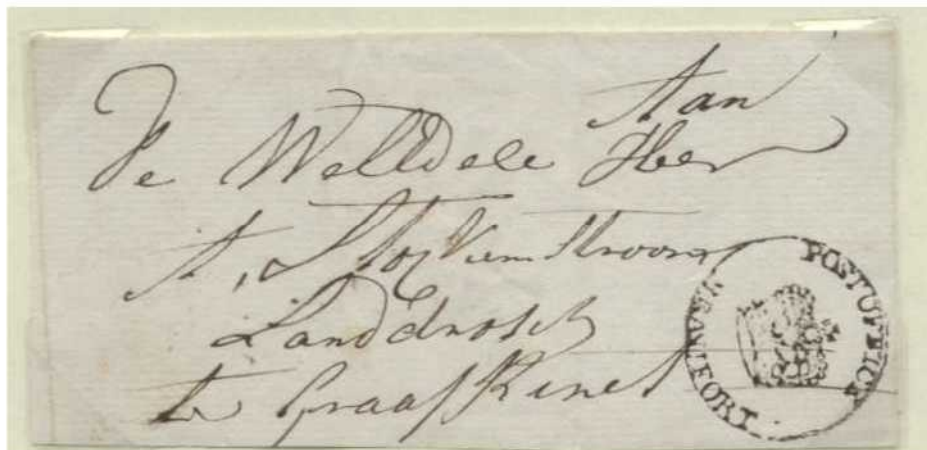 Aan
De WelEdele Heer
A, Stockenstroom
Landdrost
te Graaff Rinet
POST OFFICE
BEAUFORT.